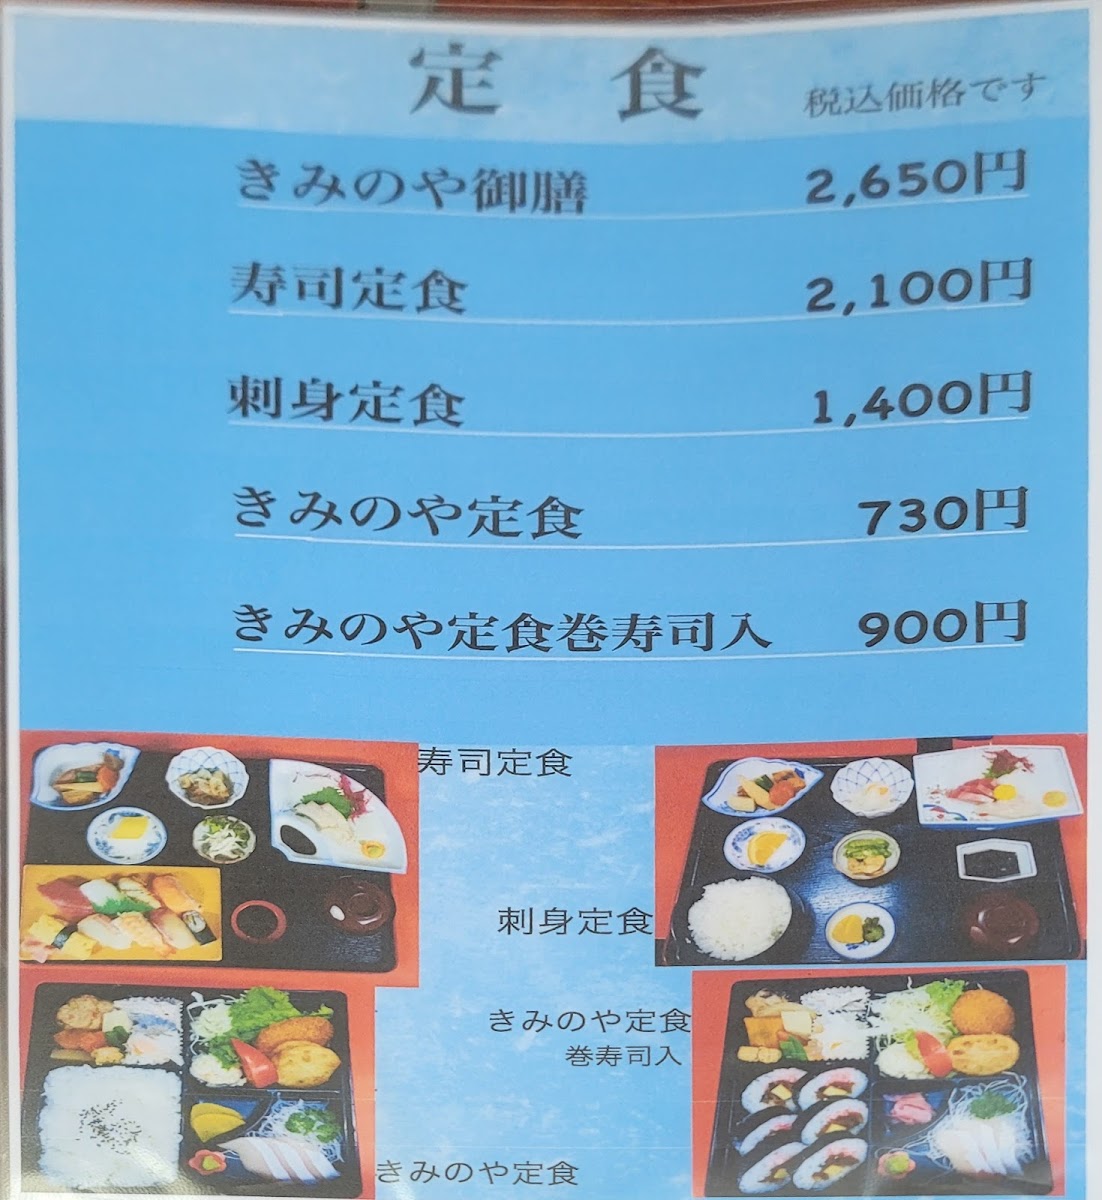 定食 税込価格です
きみのや御膳 2,650円
寿司定食 2,100円
刺身定食 1,400円
きみのや定食 730円
きみのや定食巻寿司入 900円
寿司定食
刺身定食
きみのや定食
巻寿司入
きみのや定食